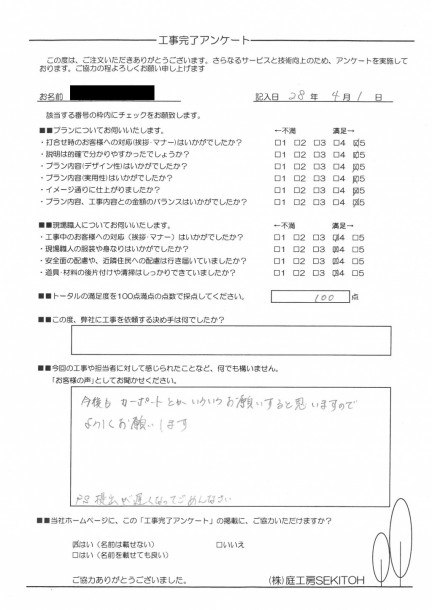 工事完了アンケート
この度は、ご注文いただきありがとうございます。さらなるサービスと技術向上のため、アンケートを実施して
おります。ご協力の程よろしくお願い申し上げます
お名前
記入日 28 年 4月 1 日
該当する番号の枠内にチェックをお願致します。
■■プランについてお伺いいたします。 ←不満 満足→
・打合せ時のお客様への対応(挨拶・マナー)はいかがでしたか? □1 □2 □3 □4 ☑5
・説明は的確で分かりやすかったでしょうか? □1 □2 □3 □4 ☑5
・プラン内容(デザイン性)はいかがでしたか? □1 □2 □3 □4 ☑5
・プラン内容(実用性)はいかがでしたか? □1 □2 □3 □4 ☑5
・イメージ通りに仕上がりましたか? □1 □2 □3 □4 ☑5
・プラン内容、工事内容との金額のバランスはいかがでしたか? □1 □2 □3 □4 ☑5
■■現場職人についてお伺いいたします。 ←不満 満足→
・工事中のお客様への対応(挨拶・マナー)はいかがでしたか? □1 □2 □3 ☑4 □5
・現場職人の服装や身なりはいかがでしたか? □1 □2 □3 ☑4 □5
・安全面の配慮や、近隣住民への配慮は行き届いていましたか? □1 □2 □3 ☑4 □5
・道具・材料の後片付けや清掃はしっかりできていましたか? □1 □2 □3 ☑4 □5
■■トータルの満足度を100点満点の点数で採点してください。 100 点
■■この度、弊社に工事を依頼する決め手は何でしたか?
■■今回の工事や担当者に対して感じられたことなど、何でも構いません。
「お客様の声」としてお聞かせください。
今後も カーポートとか いろいろ お願いすると思いますので
よろしくお願いします
P.S 提出が遅くなってごめんなさい
■■当社ホームページに、この「工事完了アンケート」の掲載に、ご協力いただけますか?
☑はい (名前は載せない) □いいえ
□はい (名前を載せても良い)
ご協力ありがとうございました。
(株)庭工房SEKITOH